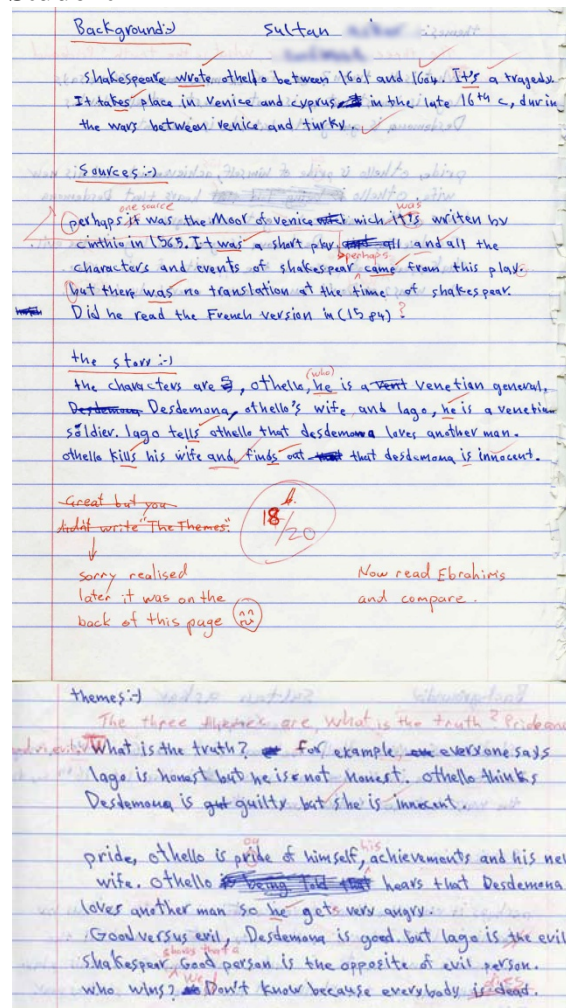 Background:-) Sultan
Shakespeare wrote othello between 1601 and 1604. It's a tragedy.
It takes place in Venice and cyprus in the late 16th c, durin
the wars between venice and turky.
Sources:-)
one source was
perhaps it was the Moor of venice wich it is writen by
cinthio in 1565. It was a short play, and all the
perhaps
characters and events of shakespear came from this play.
but there was no translation at the time of shakespear.
Did he read the French version in (1584) ?
the story :-)
(who)
the characters are, othello, he is a venetian general,
Desdemona Desdemona, othello's wife and Iago, he is a venetian
soldier. Iago tells othello that desdemona loves another man.
othello kills his wife and finds out that desdemona is innocent.
Great but you
didn't write "The Themes".
18/20
sorry realised
later it was on the
back of this page
Now read Ebrahim's
and compare.
themes:-)
The three themes are, What is the truth? Pride and
What is the truth? for example, everyone says
Iago is honest but he is not honest. othello thinks
Desdemona is guilty but she is innocent.
ou his
pride, othello is pride of himself, achievements and his
wife. othello is being told that hears that Desdemona
loves another man so he gets very angry.
Good versus evil, Desdemona is good but Iago is the evil
shows that a
shakespear Good person is the opposite of evil person.
We dies
who wins? Don't know because everybody is dead.